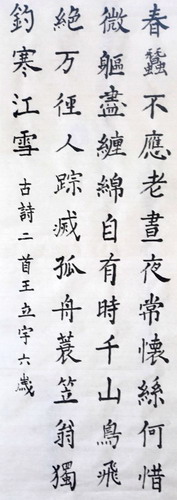 春蠶不應老晝夜常懷絲何惜
微軀盡纏綿自有時千山鳥飛
絕万徑人踪滅孤舟蓑笠翁獨
釣寒江雪 古詩二首王立宇六歲